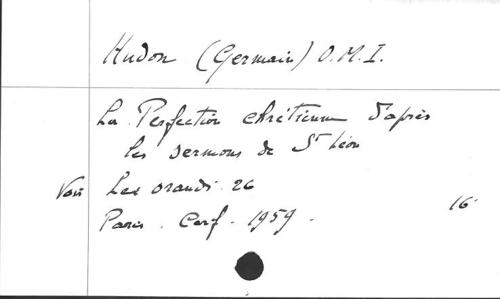 Hudon (Germain) O.M.I.
La Perfection chrétienne d'après
les sermons de St Léon
Voir Lex orandi. 26
Paris. Cerf. 1959. 16°